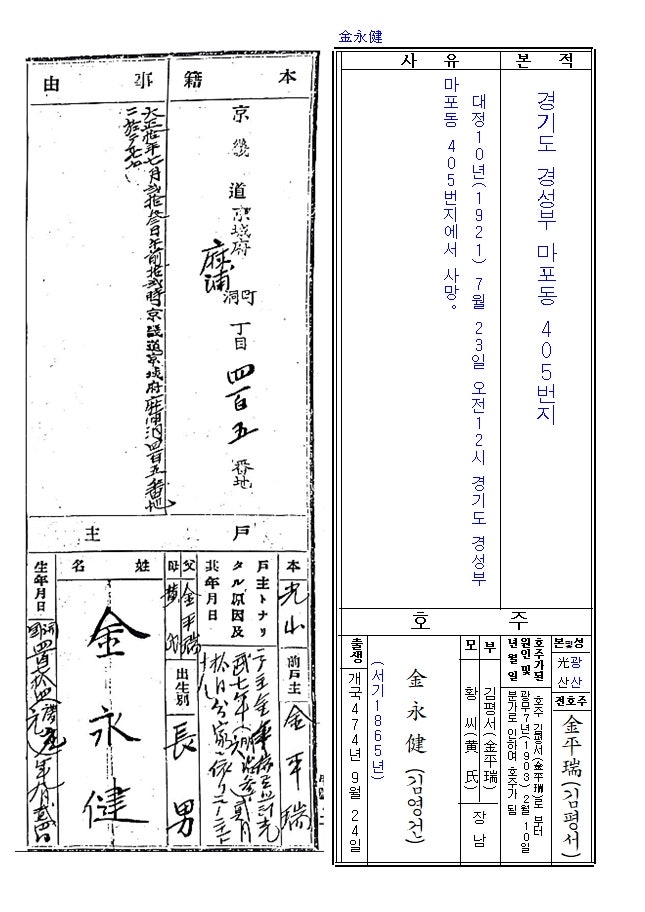 金永健
本籍
事由
京畿道京城府
麻浦
洞町
丁目
四百五
番地
大正拾年七月弐拾参日午前拾弐時京畿道京城府麻浦洞四百五番地
戶主
本
光山
前戶主
金平瑞
戶主トナリタル原因及其年月日
父
金平瑞
母
黃氏
出生別
長男
姓名
金永健
生年月日
본 적
사 유
경기도 경성부 마포동 405번지
대정10년(1921) 7월 23일 오전12시 경기도 경성부
마포동 405번지에서 사망.
호 주
본및성
光광
山산
전호주
金平瑞(김평서)
호주가된
원인 및
년 월 일
호주 김평서(金平瑞)로 부터
광무7년(1903) 2월 10일
분가로 인하여 호주가 됨
부
김평서(金平瑞)
모
황 씨(黃 氏)
장 남
金永健(김영건)
(서기1865년)
출생
개국474년 9월 24일